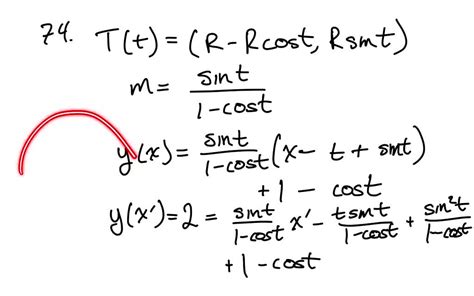 74. T(t) = (R - Rcost, Rsint)
m = sint/(1-cost)
y(x) = sint/(1-cost) (x - t + sint)
+ 1 - cost
y(x') = 2 = sint/(1-cost) x' - tsint/(1-cost) + sin²t/(1-cost)
+ 1 - cost